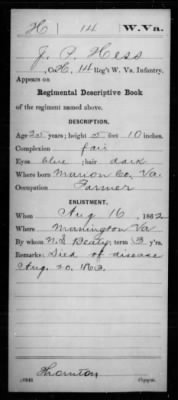 H | 14 | W. Va.
J. P. Hess
, Co. H, 14 Reg't W. Va. Infantry.
Appears on
Regimental Descriptive Book
of the regiment named above.
DESCRIPTION.
Age 25 years; height 5 feet 10 inches.
Complexion fair
Eyes blue ; hair dark
Where born Marion Co, Va.
Occupation Farmer
ENLISTMENT.
When Aug 16, 1862
Where Mannington Va
By whom N.S. Beaty; term 3 y'rs.
Remarks: Died of disease
Aug. 20, 1863.
Thornton
Copyist.